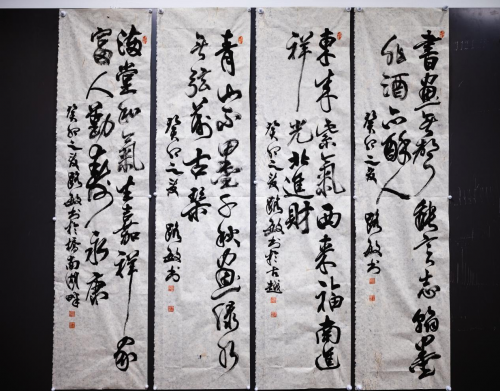 書畫無聲能言志翰墨
非酒亦醉人
癸卯之夏 路敏书
東來紫氣西來福南進
祥光北進財
癸卯之夏路敏书於古趙
青山不墨千秋畫绿水
無弦萬古琴
癸卯之夏 路敏书
满堂和氣生嘉祥家
富人勤壽永康
癸卯之夏路敏书於南湖畔